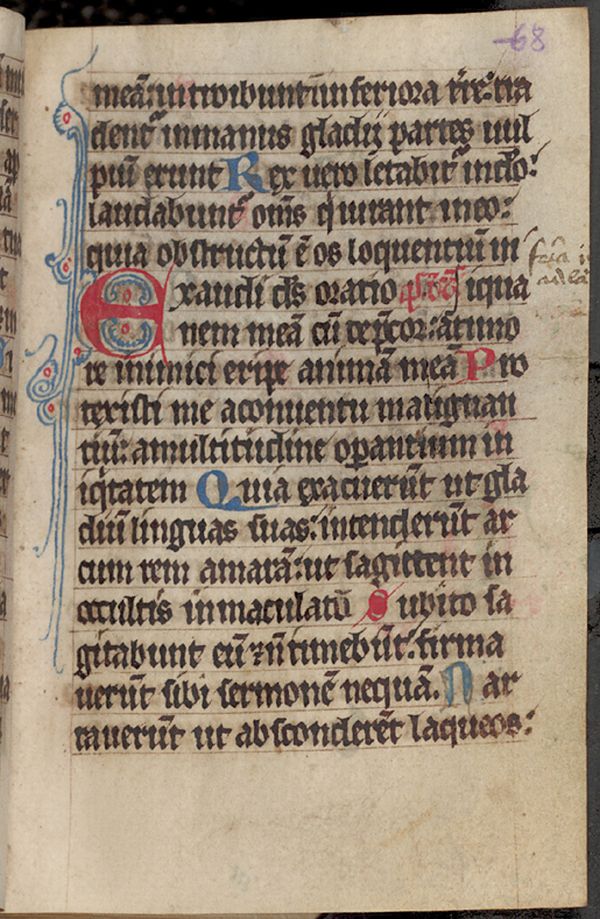 68
meā: introibunt ī inferiora t̄re: tra
dent᷑ in manus gladij partes uul
piū erunt Rex uero letabit᷑ in dō:
laudabunt᷑ om̄s q̇ iurant in eo:
quia obstructū ē os loquentiū in
Exaudi ds̄ oratio iqua
nem meā cū dep̄cor: a timo
re inimici eripe animā meā Pro
texisti me a conuentu malignan
tiū: a multitudine oꝑantium in
iq̇tatem Quia exacuerūt ut gla
diū linguas suas: intenderūt ar
cum rem amarā: ut sagittent in
occultis inmaculatū Subito sa
gitabunt eū ⁊ n̄ timebūt: firma
uerūt sibi sermonē nequā. Nar
rauerūt ut absconderēt laqueos: